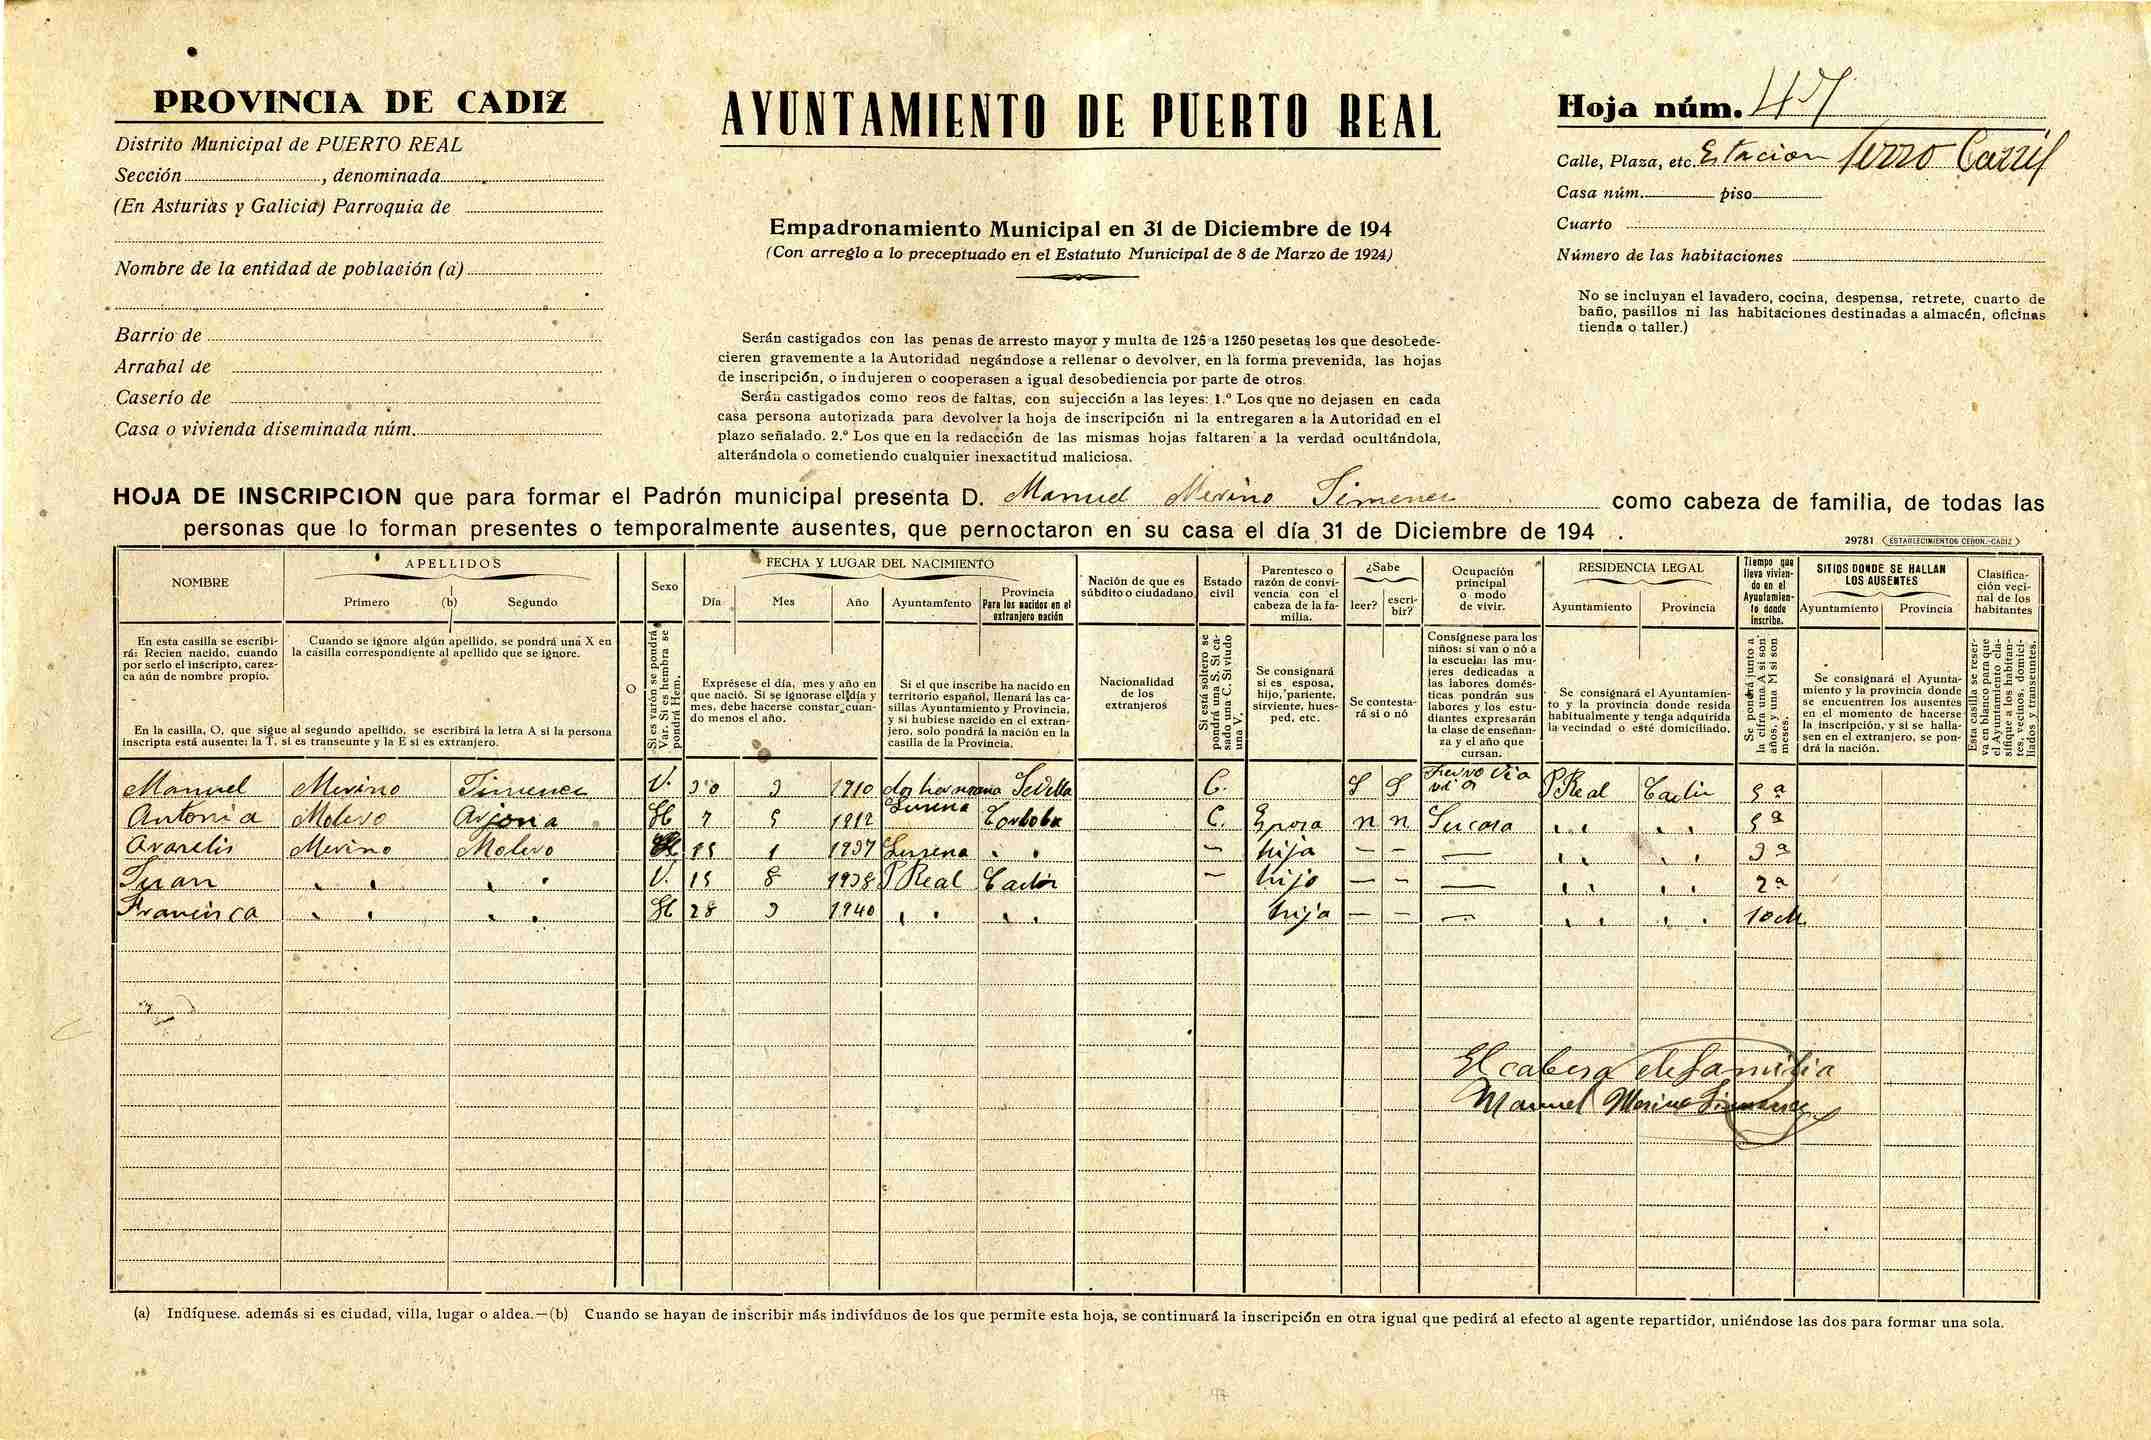 PROVINCIA DE CADIZ
Distrito Municipal de PUERTO REAL
Sección , denominada
(En Asturias y Galicia) Parroquia de
Nombre de la entidad de población (a)
Barrio de
Arrabal de
Caserío de
Casa o vivienda diseminada núm.
AYUNTAMIENTO DE PUERTO REAL
Empadronamiento Municipal en 31 de Diciembre de 194
(Con arreglo a lo preceptuado en el Estatuto Municipal de 8 de Marzo de 1924)
Serán castigados con las penas de arresto mayor y multa de 125 a 1250 pesetas los que desobede-
cieren gravemente a la Autoridad negándose a rellenar o devolver, en la forma prevenida, las hojas
de inscripción, o indujeren o cooperasen a igual desobediencia por parte de otros.
Serán castigados como reos de faltas, con sujección a las leyes: 1.º Los que no dejasen en cada
casa persona autorizada para devolver la hoja de inscripción ni la entregaren a la Autoridad en el
plazo señalado. 2.º Los que en la redacción de las mismas hojas faltaren a la verdad ocultándola,
alterándola o cometiendo cualquier inexactitud maliciosa.
Hoja núm. 47
Calle, Plaza, etc. Estacion Ferro Carril
Casa núm. piso
Cuarto
Número de las habitaciones
No se incluyan el lavadero, cocina, despensa, retrete, cuarto de
baño, pasillos ni las habitaciones destinadas a almacén, oficinas
tienda o taller.)
HOJA DE INSCRIPCION que para formar el Padrón municipal presenta D. Manuel Merino Jimenez como cabeza de familia, de todas las
personas que lo forman presentes o temporalmente ausentes, que pernoctaron en su casa el día 31 de Diciembre de 194 .
29781 (ESTABLECIMIENTOS CERON.-CADIZ)
NOMBRE
APELLIDOS
Primero (b) Segundo
Sexo
FECHA Y LUGAR DEL NACIMIENTO
Día Mes Año Ayuntamiento
Provincia
Para los nacidos en el
extranjero nación
Nación de que es
súbdito o ciudadano
Estado
civil
Parentesco o
razón de convi-
vencia con el
cabeza de la fa-
milia.
¿Sabe
leer? escri-
bir?
Ocupación
principal
o modo
de vivir.
RESIDENCIA LEGAL
Ayuntamiento Provincia
Tiempo que
lleva vivien-
do en el
Ayuntamien-
to donde
inscribe.
SITIOS DONDE SE HALLAN
LOS AUSENTES
Ayuntamiento Provincia
Clasifica-
ción veci-
nal de los
habitantes
En esta casilla se escribi-
rá: Recien nacido, cuando
por serlo el inscripto, carez-
ca aún de nombre propio.
Cuando se ignore algún apellido, se pondrá una X en
la casilla correspondiente al apellido que se ignore.
En la casilla, O, que sigue al segundo apellido, se escribirá la letra A si la persona
inscripta está ausente; la T, si es transeunte y la E si es extranjero.
O
Si es varón se pondrá
Var. Si es hembra se
pondrá Hem.
Exprésese el día, mes y año en
que nació. Si se ignorase el día y
mes, debe hacerse constar cuan-
do menos el año.
Si el que inscribe ha nacido en
territorio español, llenará las ca-
sillas Ayuntamiento y Provincia,
y si hubiese nacido en el extran-
jero, solo pondrá la nación en la
casilla de la Provincia.
Nacionalidad
de los
extranjeros
Si está soltero se
pondrá una S. Si ca-
sado una C. Si viudo
una V.
Se consignará
si es esposa,
hijo, pariente,
sirviente, hues-
ped, etc.
Se contesta-
rá si o nó
Consígnese para los
niños: si van o nó a
la escuela: las mu-
jeres dedicadas a
las labores domés-
ticas pondrán sus
labores y los estu-
diantes expresarán
la clase de enseñan-
za y el año que
cursan.
Se consignará el Ayuntamien-
to y la provincia donde resida
habitualmente y tenga adquirida
la vecindad o esté domiciliado.
Se pondrá junto a
la cifra una A si son
años, y una M si son
meses.
Se consignará el Ayunta-
miento y la provincia donde
se encuentren los ausentes
en el momento de hacerse
la inscripción, y si se halla-
sen en el extranjero, se pon-
drá la nación.
Esta casilla se reser-
va en blanco para que
el Ayuntamiento cla-
sifique a los habitan-
tes, vecinos, domici-
liados y transeuntes.
Manuel Merino Jimenez V. 30 3 1910 dos hermana Sevilla C. S S Ferro Via
vi a P Real Cadiz 5 a
Antonia Molero Arjona H 7 5 1912 Lusena Cordoba C. Esposa n n Su casa " " 5 a
Araselis Merino Molero H 15 1 1937 Lusena " — hija — — — " " 3 a
Juan " " V. 15 8 1938 P Real Cadiz — hijo — — — " " 2 a
Francisca " " H 28 3 1940 " " hija — — — " " 10 M
El cabesa de familia
Manuel Merino Jimenez
(a) Indíquese. además si es ciudad, villa, lugar o aldea.—(b) Cuando se hayan de inscribir más individuos de los que permite esta hoja, se continuará la inscripción en otra igual que pedirá al efecto al agente repartidor, uniéndose las dos para formar una sola.
47